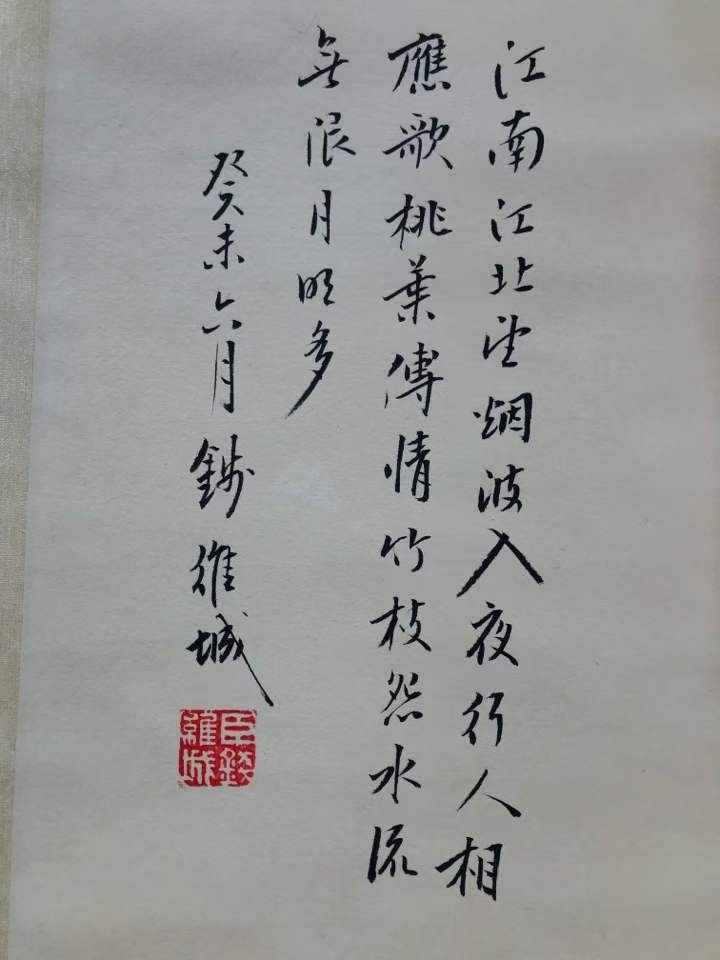 江南江北望烟波入夜行人相
應歌桃葉傳情竹枝怨水流
無限月明多
癸未六月錢維城
臣錢維城